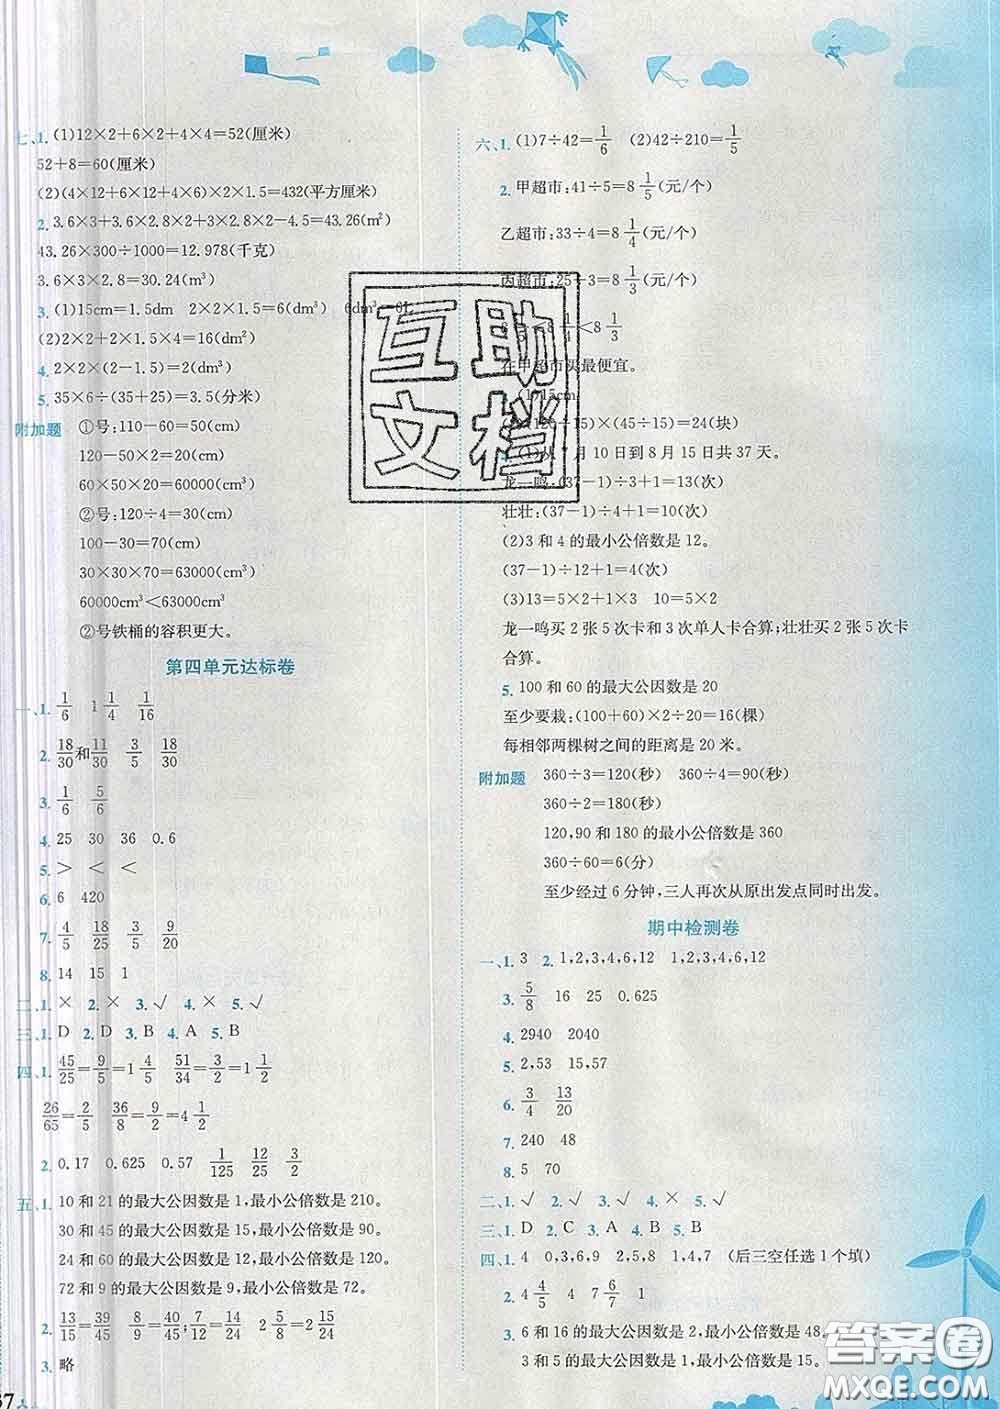 七、1. (1)12×2+6×2+4×4=52(厘米)
52+8=60(厘米)
(2)(4×12+6×12+4×6)×2×1.5=432(平方厘米)
2. 3.6×3+3.6×2.8×2+3×2.8×2-4.5=43.26(m²)
43.26×300÷1000=12.978(千克)
3.6×3×2.8=30.24(m³)
3. (1)15cm=1.5dm 2×2×1.5=6(dm³) 6dm³=6L
(2)2×2+2×1.5×4=16(dm²)
4. 2×2×(2-1.5)=2(dm³)
5. 35×6÷(35+25)=3.5(分米)
附加题 ①号:110-60=50(cm)
120-50×2=20(cm)
60×50×20=60000(cm³)
②号:120÷4=30(cm)
100-30=70(cm)
30×30×70=63000(cm³)
60000cm³<63000cm³
②号铁桶的容积更大。
第四单元达标卷
一、1. 1/6 1 1/4 1/16
2. 18/30和11/30 3/5 18/30
3. 1/6 5/6
4. 25 30 36 0.6
5. > < <
6. 6 420
7. 4/5 18/25 3/5 9/20
8. 14 15 1
二、1. × 2. × 3. √ 4. × 5. √
三、1. D 2. D 3. B 4. A 5. B
四、1. 45/25=9/5=1 4/5 51/34=3/2=1 1/2
26/65=2/5 36/8=9/2=4 1/2
2. 0.17 0.625 0.57 1/125 12/25 3/12
五、1. 10 和 21 的最大公因数是 1,最小公倍数是 210。
30 和 45 的最大公因数是 15,最小公倍数是 90。
24 和 60 的最大公因数是 12,最小公倍数是 120。
72 和 9 的最大公因数是 9,最小公倍数是 72。
2. 13/15=39/45 8/9=40/45;7/12=14/24 2 5/8=2 15/24
3. 略
37
六、1. (1)7÷42=1/6 (2)42÷210=1/5
2. 甲超市:41÷5=8 1/5(元/个)
乙超市:33÷4=8 1/4(元/个)
丙超市:25÷3=8 1/3(元/个)
8 1/5<8 1/4<8 1/3
在甲超市买最便宜。
(1)15cm
(120÷15)×(45÷15)=24(块)
(1)从 7 月 10 日到 8 月 15 日共 37 天。
龙一鸣:(37-1)÷3+1=13(次)
壮壮:(37-1)÷4+1=10(次)
(2)3 和 4 的最小公倍数是 12。
(37-1)÷12+1=4(次)
(3)13=5×2+1×3 10=5×2
龙一鸣买 2 张 5 次卡和 3 次单人卡合算;壮壮买 2 张 5 次卡
合算。
5. 100 和 60 的最大公因数是 20
至少要栽:(100+60)×2÷20=16(棵)
每相邻两棵树之间的距离是 20 米。
附加题 360÷3=120(秒) 360÷4=90(秒)
360÷2=180(秒)
120,90 和 180 的最小公倍数是 360
360÷60=6(分)
至少经过 6 分钟,三人再次从原出发点同时出发。
期中检测卷
一、1. 3 2. 1,2,3,4,6,12 1,2,3,4,6,12
3. 5/8 16 25 0.625
4. 2940 2040
5. 2,53 15,57
6. 3/4 13/20
7. 240 48
8. 5 70
二、1. √ 2. √ 3. √ 4. × 5. √
三、1. D 2. C 3. A 4. B 5. D
四、1. 4 0,3,6,9 2,5,8 1,4,7 (后三空任选 1 个填)
2. 4 4/5 4 7 6/7 1
3. 6 和 16 的最大公因数是 2,最小公倍数是 48。
3 和 5 的最大公因数是 1,最小公倍数是 15。
互助
文档
答案圈
MXQE.COM